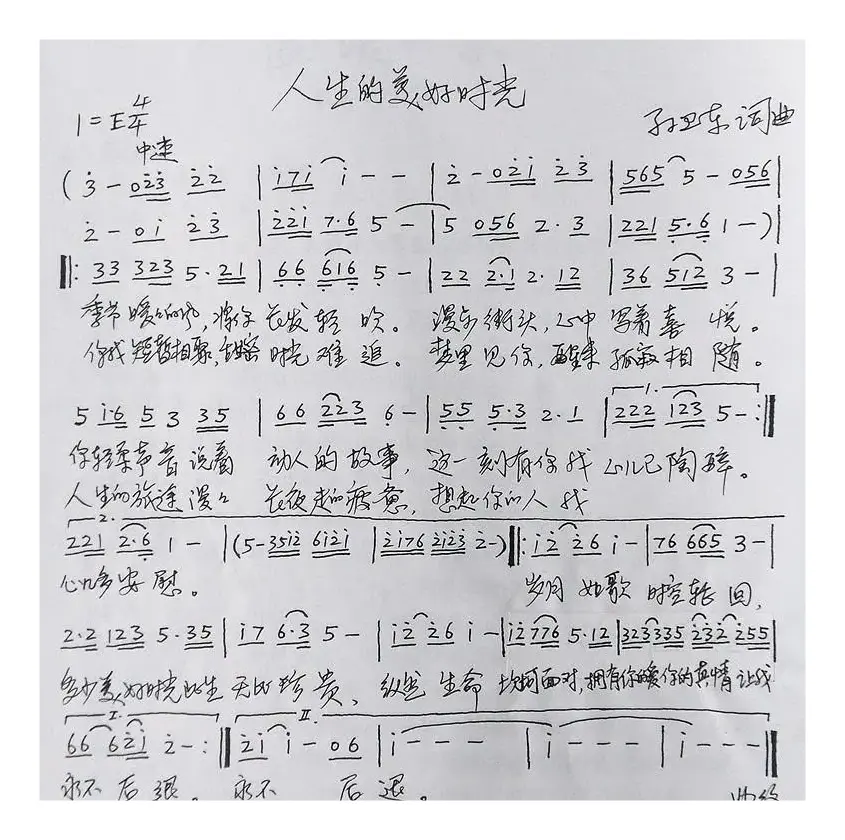 人生的美好时光
1=E 4/4
中速
孙卫东 词曲
(3̇ - 02̇3̇ 2̇2̇ | i̇7i̇ i̇ - - | 2̇ - 02̇i̇ 2̇3̇ | 565 5 - 056 |
2̇ - 0i̇ 2̇3̇ | 2̇2̇i̇ 7·6 5 - | 5 056 2·3 | 221 5̣·6̣ 1 - )|
‖: 33 323 5·21 | 6̣6̣ 6̣16̣ 5̣ - | 22 2·1 2·12 | 36 512 3 - |
季节暖暖的风,将你长发轻吹。漫步街头,心中写着喜悦。
你我短暂相聚,甜蜜时光难追。梦里见你,醒来孤寂相随。
1.
5 i̇·6 5 3 35 | 66 223 6̣ - | 5̣5̣ 5̣·3 2·1 | 222 123 5 - :‖
你轻柔声音说着 动人的故事,这一刻有你我心儿已陶醉。
人生的旅途漫漫 长夜走的疲惫,想起你的人我
2.
221 2·6̣ 1 - |(5-35i̇2̇ 6i̇2̇i̇ | 2̇i̇76 2̇i̇2̇3̇ 2̇-)‖: i̇2̇ 2̇6 i̇ - | 76 665 3 - |
心儿多安慰。 岁月如歌 时空轮回,
2·2 123 5·35 | i̇7 6·3 5 - | i̇2̇ 2̇6 i̇ - | i̇2̇776 5·12 | 323335 2̇3̇2̇ 2̇55 |
多少美好时光此生无比珍贵、纵然生命坎坷面对,拥有你的暖你的真情让我
I. II.
66 62̇i̇ 2̇ - :‖ 2̇i̇ i̇ - 06 | i̇ - - - | i̇ - - - | i̇ - - - ‖
永不后退。永不 后退。